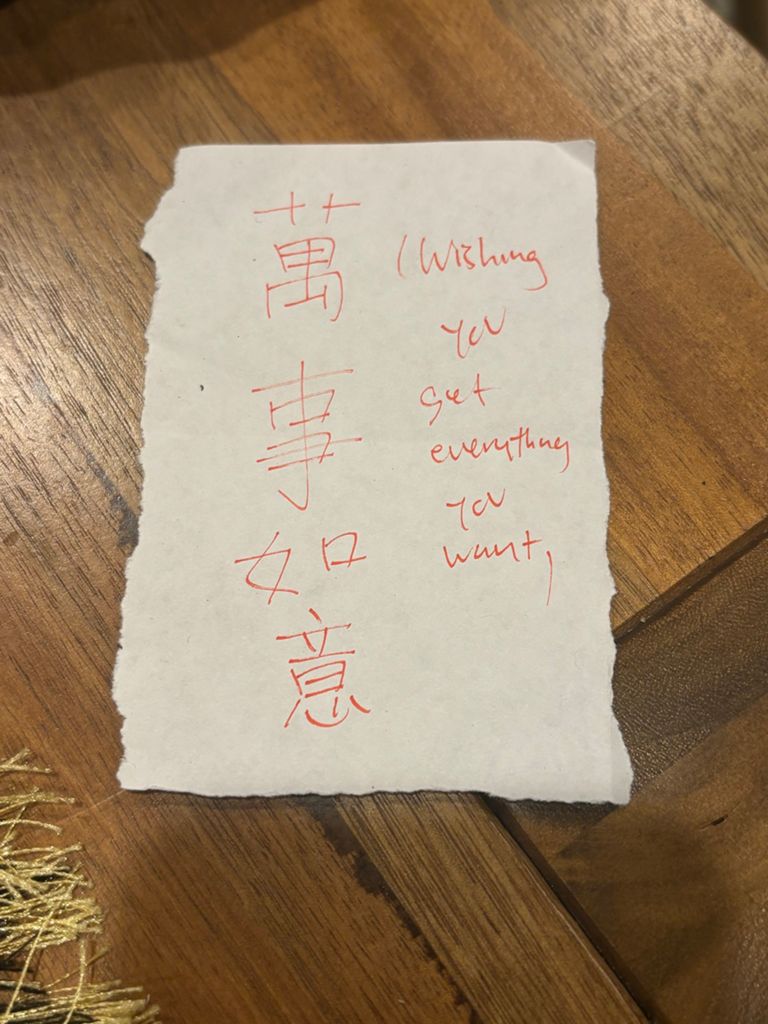 萬事如意
(Wishing
you
get
everything
you
want)